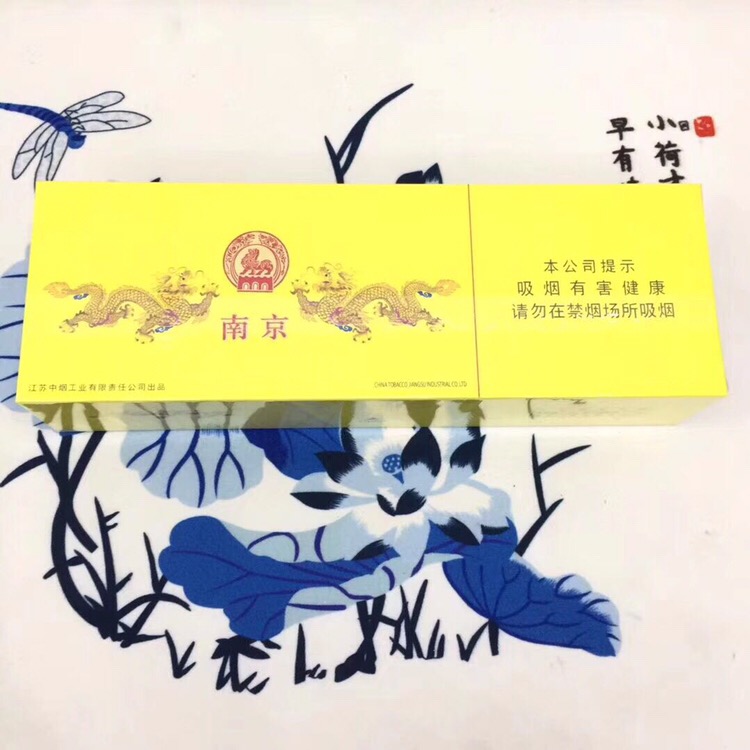 小荷才
早有
南京
江苏中烟工业有限责任公司出品
CHINA TOBACCO JIANGSU INDUSTRIAL CO LTD
本公司提示
吸烟有害健康
请勿在禁烟场所吸烟